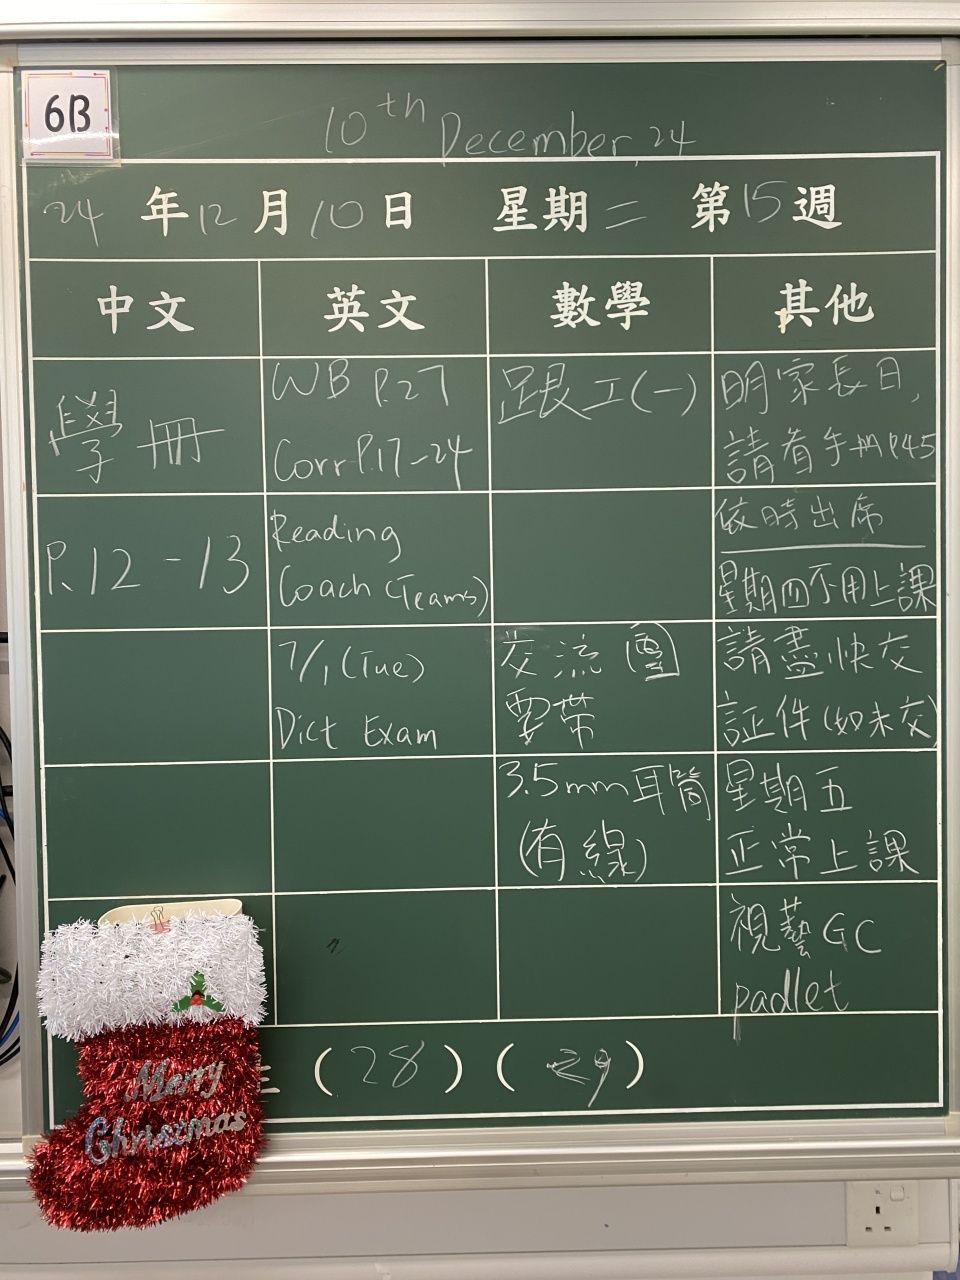 6B
10th December, 24
24 年 12 月 10 日 星期二 第 15 週
中文 英文 數學 其他
學冊
P.12 - 13
WB P.27
Corr P.17-24
Reading
Coach (Teams)
7/1 (Tue)
Dict Exam
跟工(一)
交流團
要帶
3.5mm 耳筒
(有線)
明家長日,
請看手冊P.45
依時出席
星期四不用上課
請盡快交
証件(如未交)
星期五
正常上課
視藝 GC
padlet
(28) (29)
Merry
Christmas